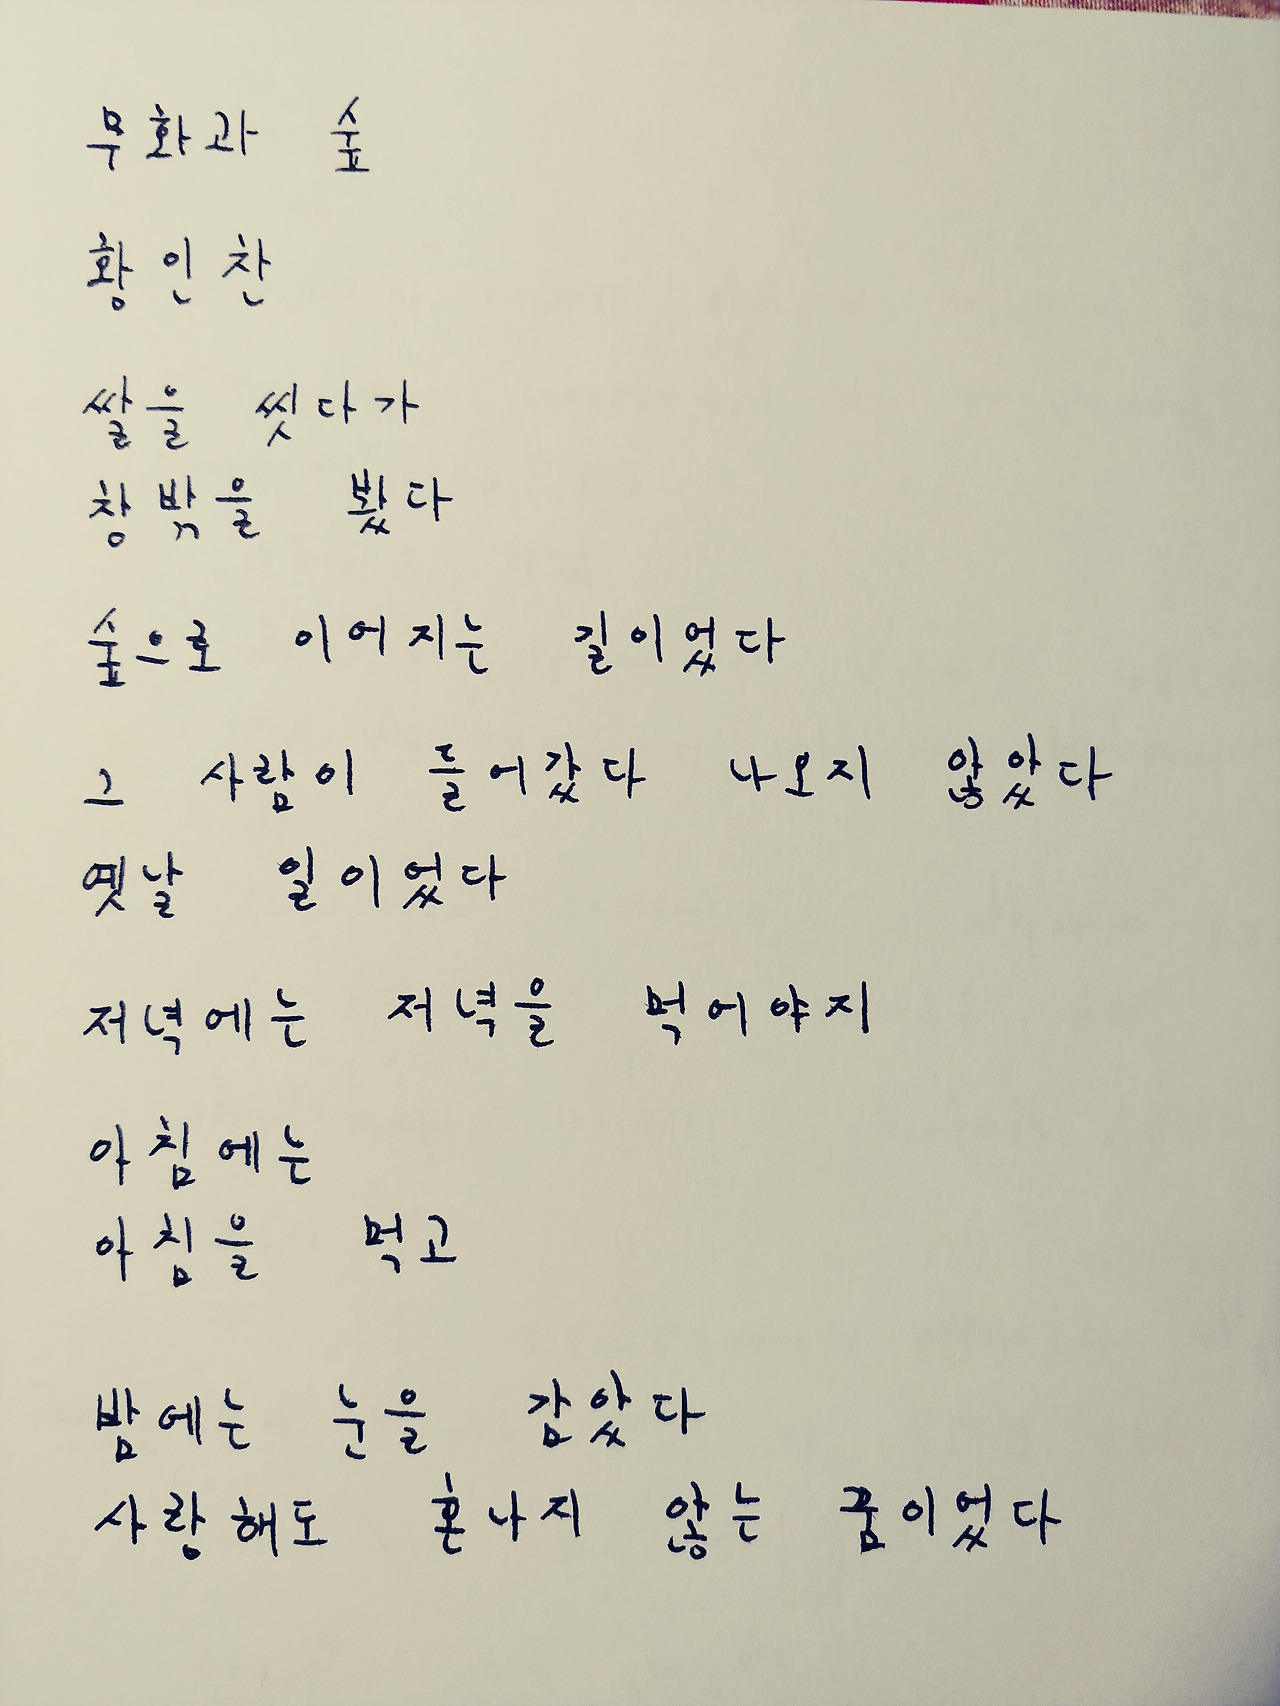 무화과 숲
황인찬
쌀을 씻다가
창밖을 봤다
숲으로 이어지는 길이었다
그 사람이 들어갔다 나오지 않았다
옛날 일이었다
저녁에는 저녁을 먹어야지
아침에는
아침을 먹고
밤에는 눈을 감았다
사랑해도 혼나지 않는 꿈이었다